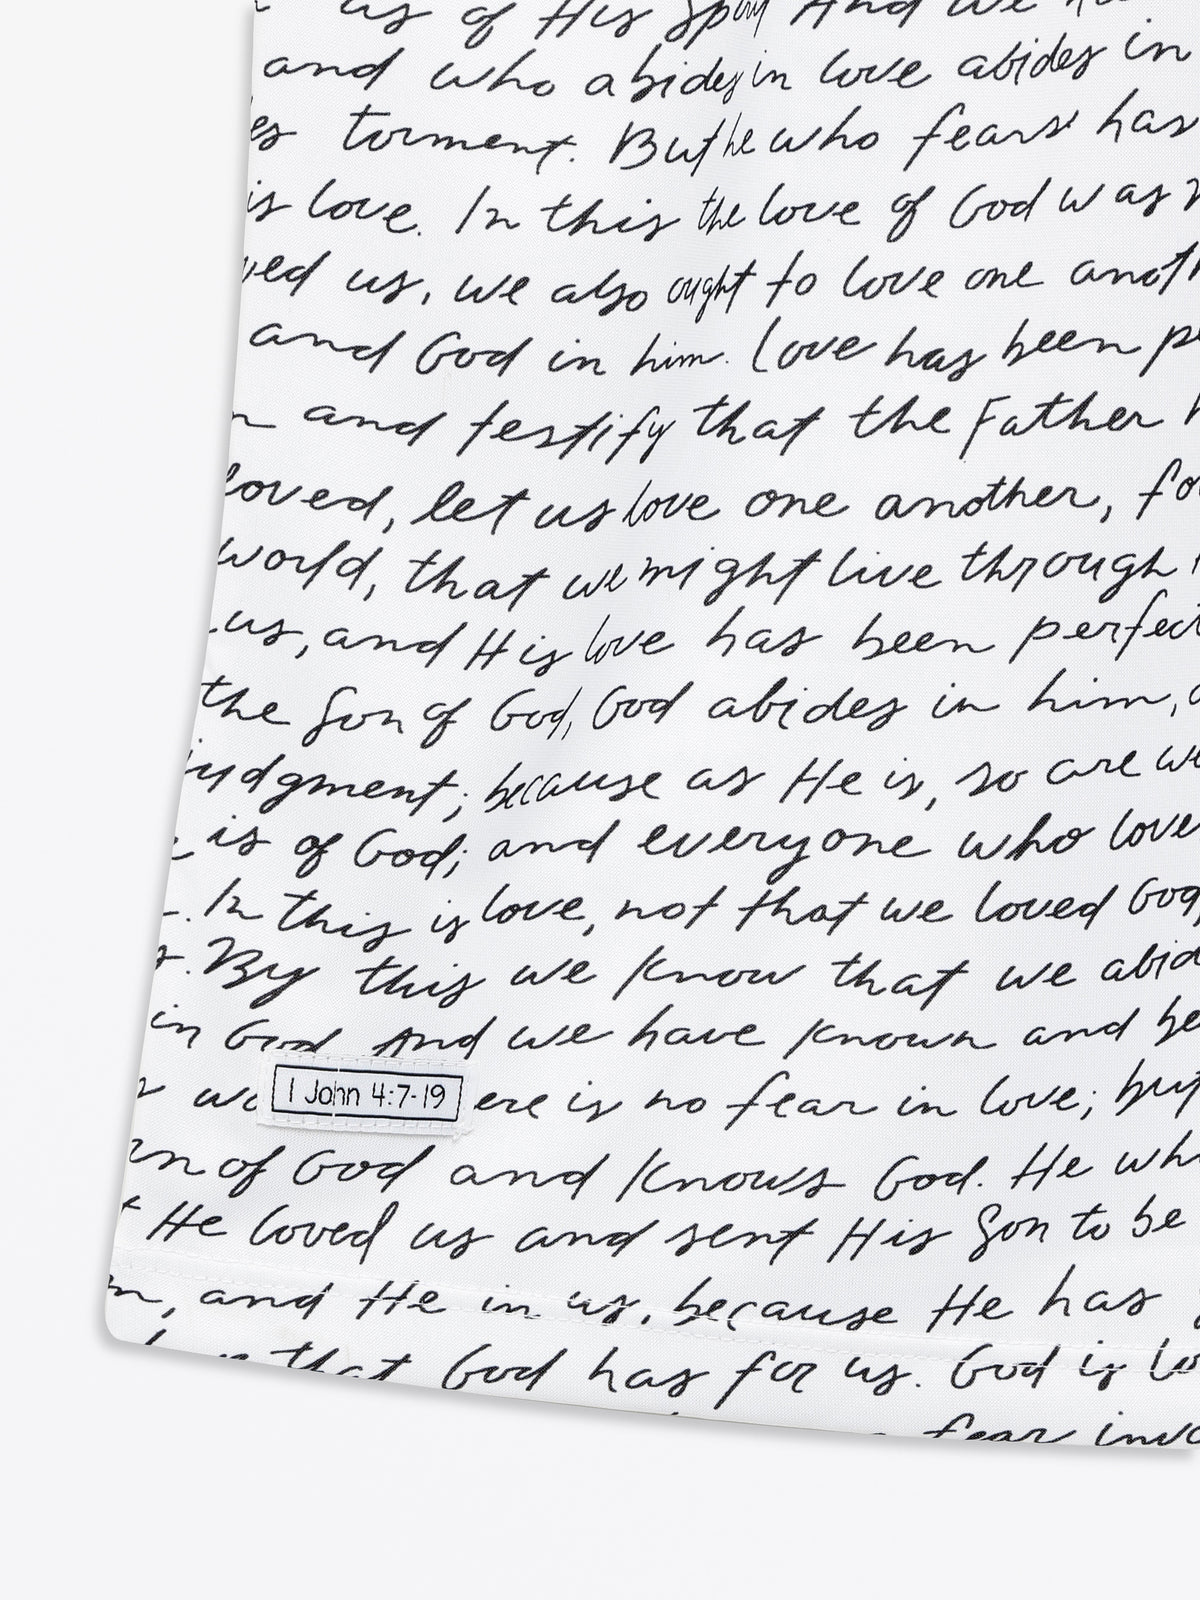 us of His Spirit And we
and who abides in love abides in
torment. But he who fears has
is love. In this the love of God was
us, we also ought to love one
and God in him. Love has been
and testify that the Father
loved, let us love one another,
world, that we might live through
us, and His love has been
the Son of God, God abides in him,
judgment; because as He is, so are we
is of God; and everyone who
. In this is love, not that we loved God,
. By this we know that we
in God And we have known and
1 John 4:7-19
ere is no fear in love; but
of God and knows God. He
He loved us and sent His Son to be
, and He in us, because He has
that God has for us. God is
fear